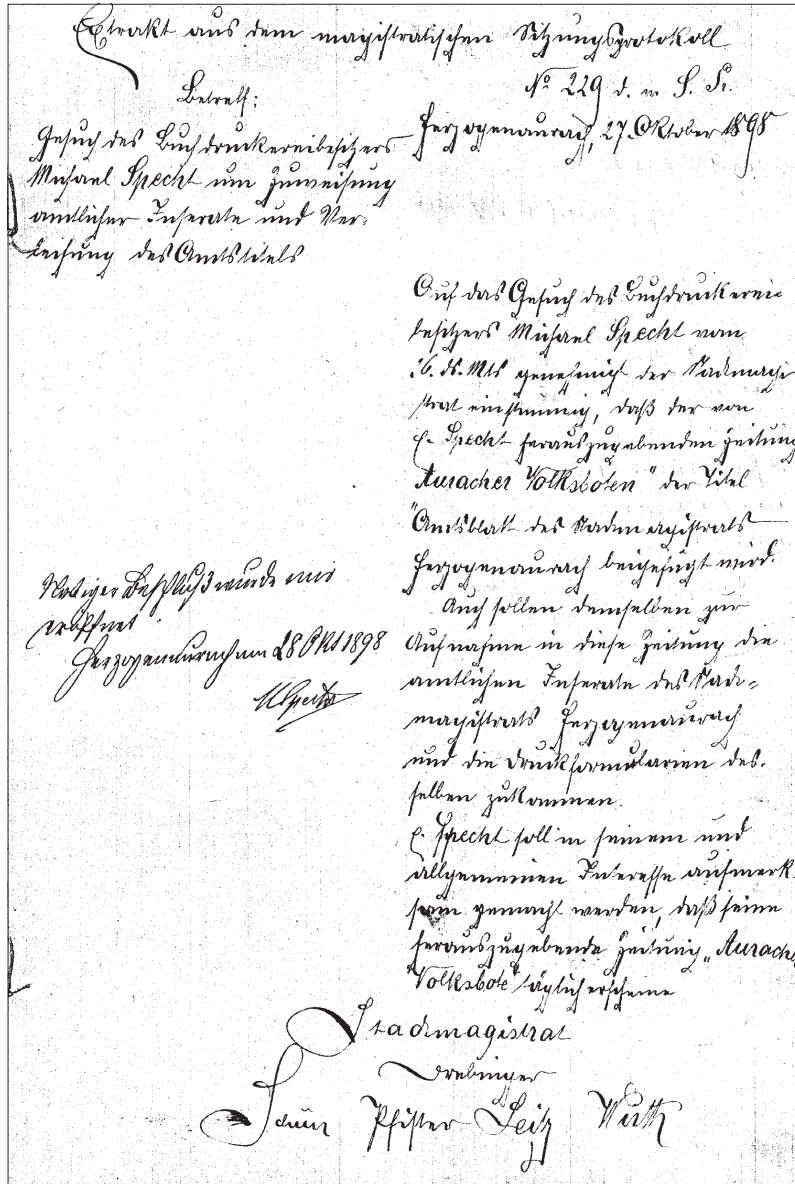 Extrakt aus dem magistratischen Sitzungsprotokoll
No 229 d. m. S. Pr.
Herzogenaurach, 27. Oktober 1898
Betreff:
Gesuch des Buchdruckereibesitzers
Michael Specht um Zuweisung
amtlicher Inserate und Ver-
leihung des Amtstitels
Auf das Gesuch des Buchdruckerei-
besitzers Michael Specht vom
26. ds. Mts genehmigt der Stadtmagi
strat einstimmig, daß der von
p. Specht herauszugebenden Zeitung
Auracher Volksboten" der Titel
"Amtsblatt des Stadtmagistrats
Herzogenaurach beigefügt wird.
Auch sollen demselben zur
Aufnahme in diese Zeitung die
amtlichen Inserate des Stadt-
magistrats Herzogenaurach
und die Druckformularien des-
selben zukommen.
p. Specht soll in seinem und
allgemeinen Interesse aufmerk-
sam gemacht werden, daß seine
herauszugebende Zeitung „Aurach
Volksbote" täglich erscheine
Beschluß wurde mir
eröffnet
Herzogenaurach am 28 Okt 1898
MSpecht
Stadtmagistrat
Drebinger
Schürr Pfister Seitz Wirth